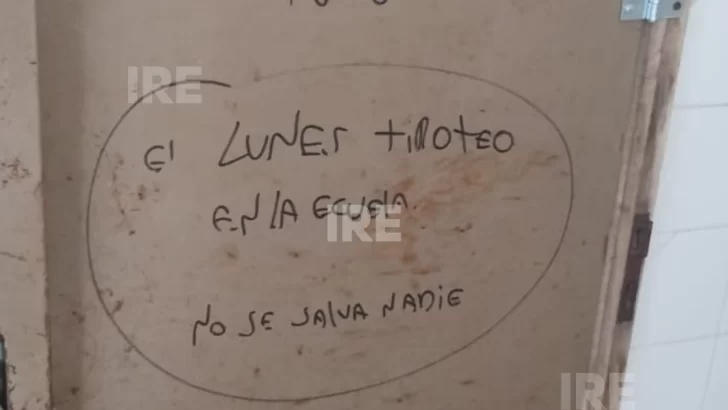 IRE
El LUNES TIROTEO
EN lA ESCUElA
IRE
NO SE SAlVA NADiE
IRE